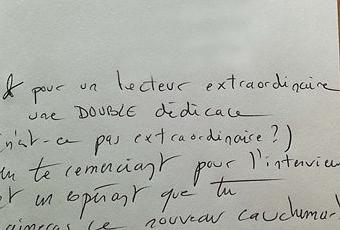 & pour un lecteur extraordinaire
une DOUBLE dédicace
(n'est-ce pas extraordinaire ?)
en te remerciant pour l'interview
et en espérant que tu
aimeras ce nouveau cauchemar